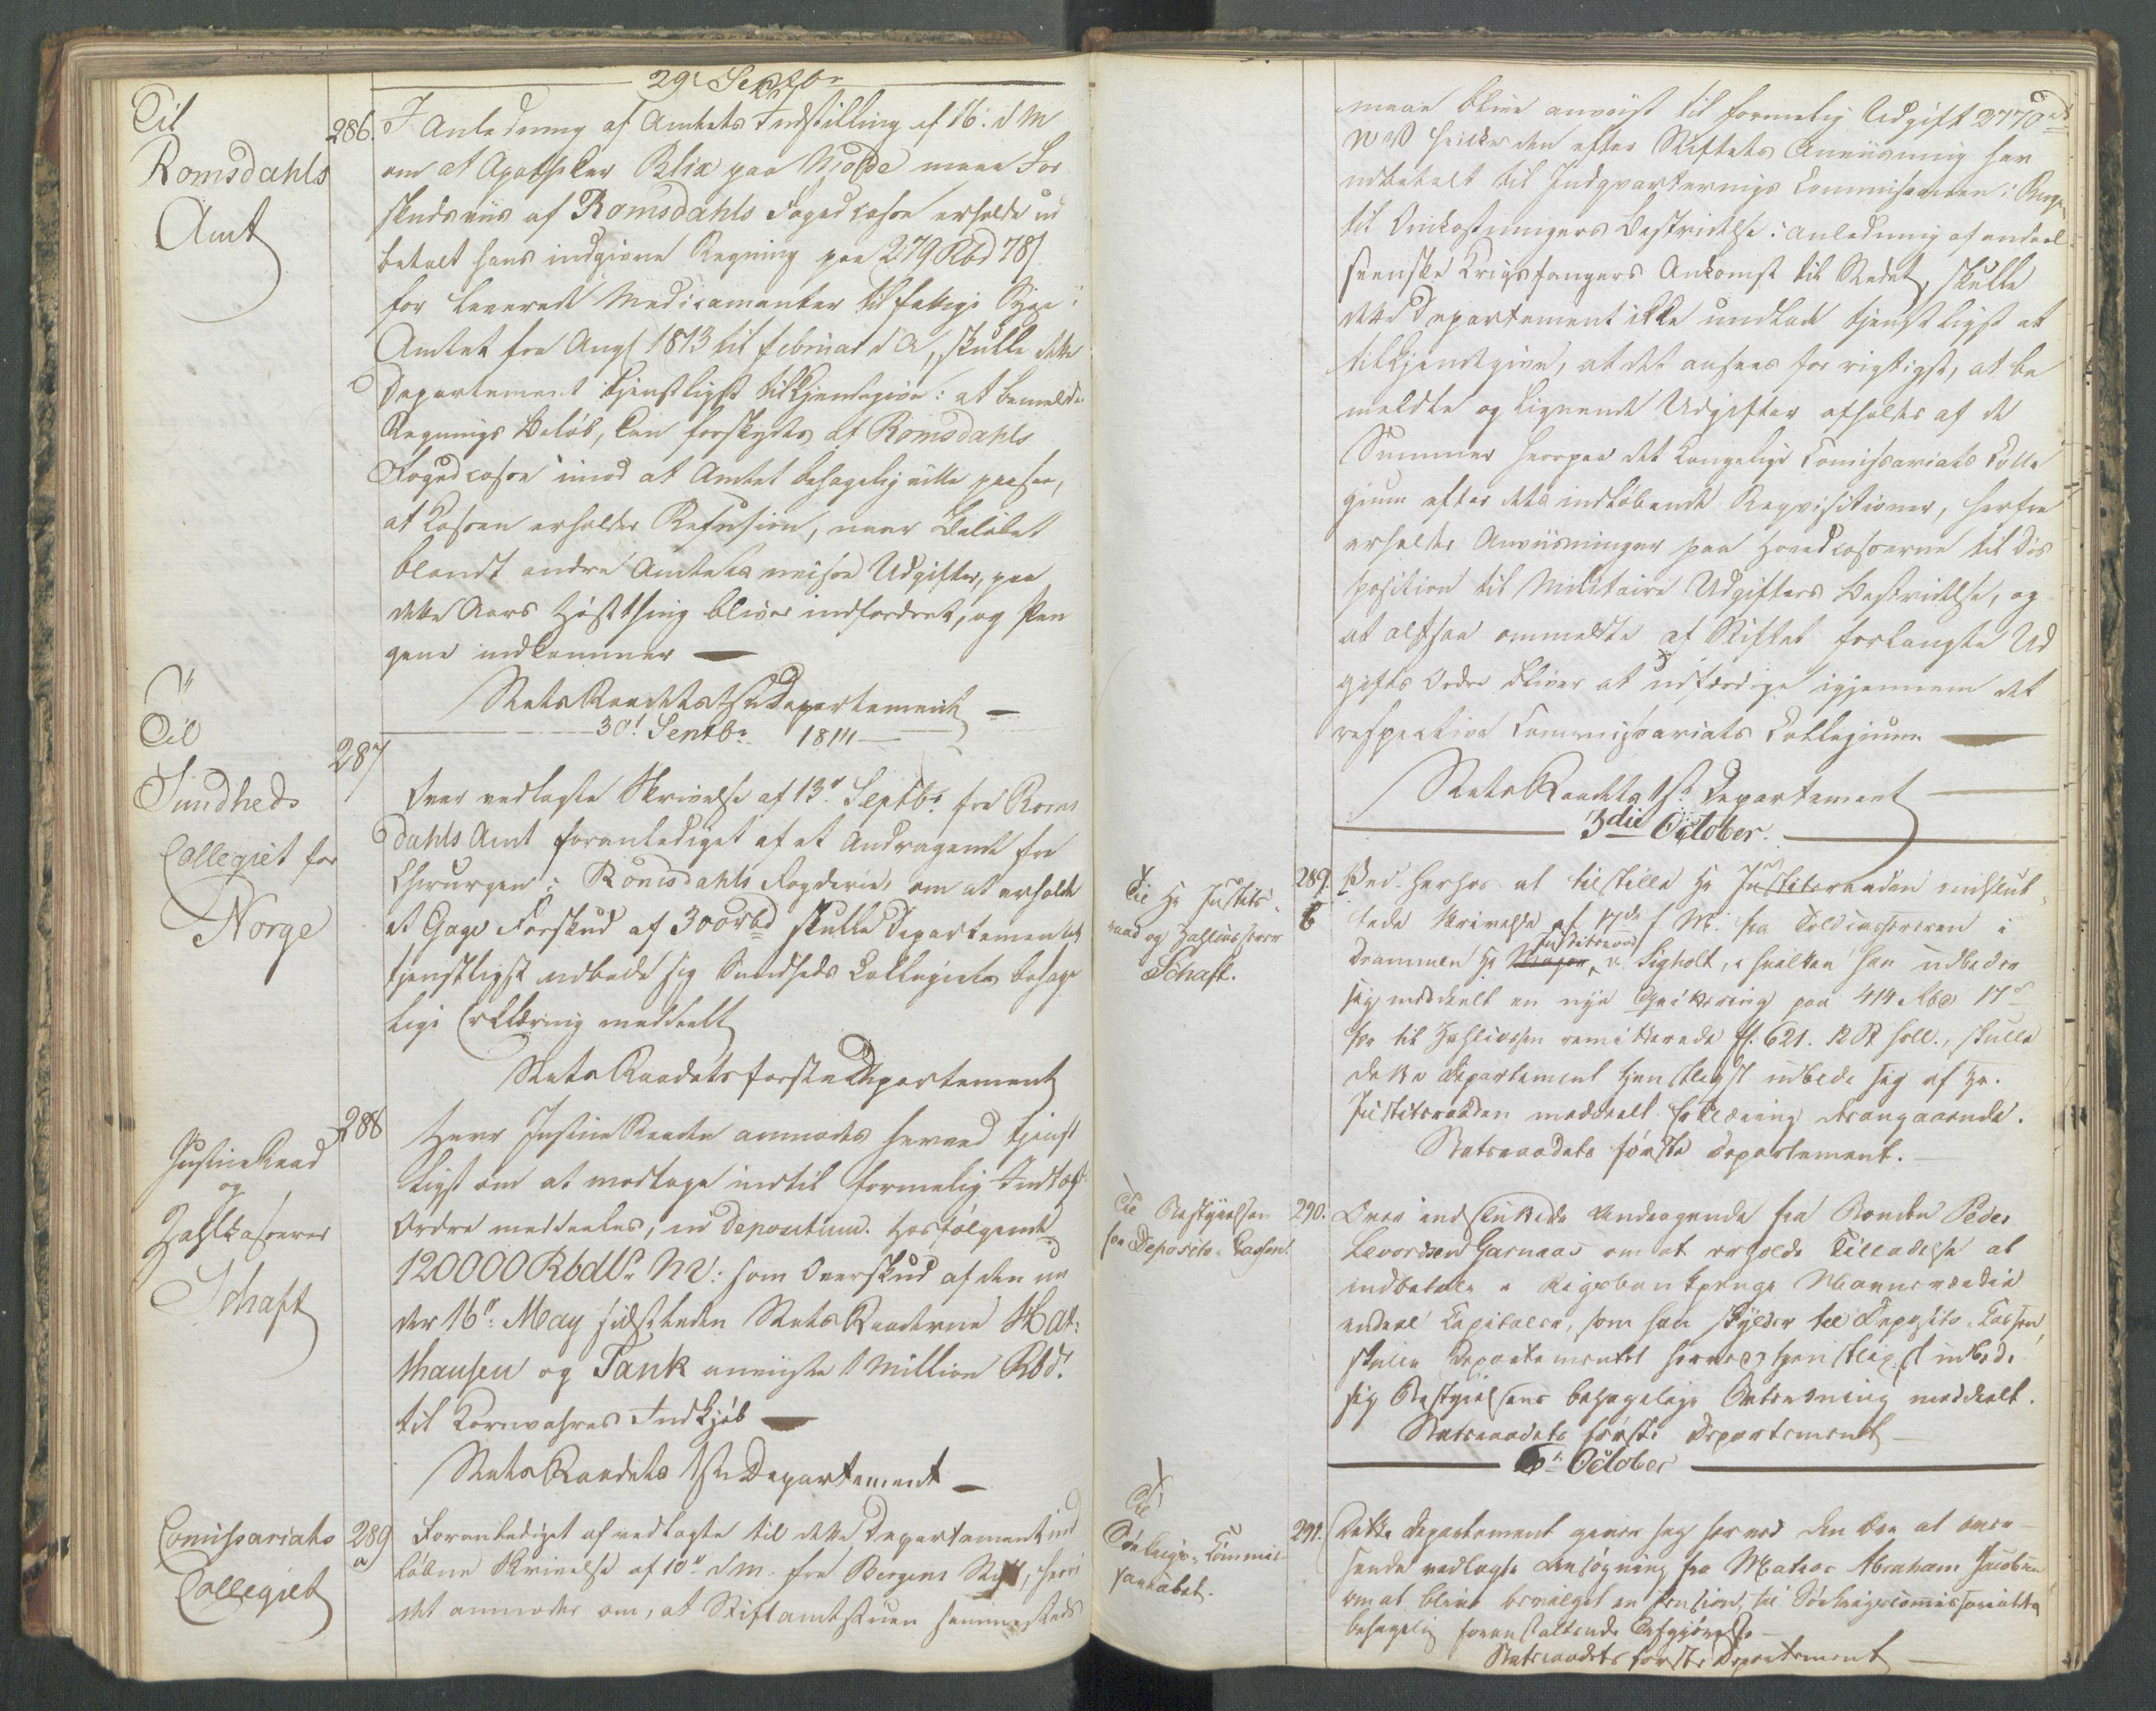 29de Septbr
Til
Romsdahls
Amt
286. I Anledning af Amtets Indstilling af 16: d M
om at Apotheker Blix paa Molde maae For
skudsviis af Romsdahls Fogedcasse erholde ud
betalt hans indgivne Regning paa 279 Rbd 78 s
for leverede Medicamenter til fattige Syge i
Amtet fra Aug 1813 til Februar d A, skulle dette
Departement tjenstligst tilkjendegive: at bemeldte
Regnings Beløb, kan forskydes af Romsdahls
Fogedcasse imod at Amtet behagelig ville paasee,
at Cassen erholder Refusion, naar Beløbet
blandt andre Amtets visse Udgifter, paa
dette Aars Høstthing bliver indfordret, og Pen
gene indkommer
StatsRaadets 1ste Departement
30t Septbr 1814
Til
Sundheds
Collegiet for
Norge
287
Over vedlagte Skrivelse af 13d Septbr fra Roms
dahls Amt foranlediget af et Andragende fra
Chirurgen i Romsdahls Fogderie, om at erholde
et Gage Forskud af 300 rbd skulle Departementet
tjenstligst udbede sig Sundheds Collegiets behage
lige Erklæring meddeelt
StatsRaadets første Departement
Justice Raad
og
Zahlkasserer
Schaft
288
Herr Justice Raaden anmodes herved tjenst
ligst om at modtage indtil formelig Indtægts
Ordre meddeeles, in depositum hosfølgende
120000 Rbd NV: som Overskud af den un
der 16de May sidstleden StatsRaaderne Hax-
thausen og Tank anviiste 1 Million Rbd.
til Kornvahres Indkjøb
StatsRaadets 1ste Departement
Comissariats
Collegiet
289
a
Foranlediget af vedlagte til dette Departement ind
løbne Skrivelse af 10de d M. fra Bergens Stift, hvori
det anmodes om, at Stiftamtstuen sammesteds
maae blive anviist til formelig Udgift 2770 rd
NV hvilke den efter Stiftets Anviisning har
udbetalt til Indqvarterings Commissionen i Bergen
til Omkostningers Bestridelse i Anledning af endeel
svenske Krigsfangers Ankomst til Stedet, skulle
dette Departement ikke undlade tjenstligst at
tilkjendegive, at det ansees for rigtigst, at be
meldte og lignende Udgifter afholdes af de
Summer hvorpaa det Kongelige Comissariats Colle
gium efter dets indløbende Reqvisitioner, herfra
erholder Anviisninger paa Hovedcasserne til Dis
position til Militaire Udgifters Bestridelse, og
at altsaa ommeldte af Stiftet forlangte Ud
gifts Ordre bliver at udfærdige igjennem det
respective Commissariats Collegium
StatsRaadets 1ste Departement
3die October.
Til Hr Justits-
raad og Zahlcasserer
Schaft.
289.
b
Ved herhos at tilstille Hr Justitsraaden indslut
tede Skrivelse af 17de f M. fra Toldcassereren i
Drammen Hr Justitsraad v. Sigholt, i hvilken han udbeder
sig meddeelt en nye Qvittering paa 414 Rbd 17 s
for til Zahlcassen remitterede fl. 621. 12 holl., skulle
dette Departement tjenstligst udbede sig af Hr.
Justitsraaden meddeelt Erklæring desangaaende.
Statsraadets første Departement.
Til Bestyrelsen
for Deposito-Cassen.
290. Over indsluttede Andragende fra Bonden Peder
Levordsen Garnaas om at erholde Tilladelse at
indbetale i Rigsbankpenge Navneværdie
endeel Capitaler, som han skylder til Deposito-Cassen,
skulle Departementet herved tjenstligst udbede
sig Bestyrelsens behagelige Betænkning meddeelt.
Statsraadets første Departement
6te October
Til
Søekrigs-Commis-
sariatet.
291. Dette Departement giver sig herved den Ære at over
sende vedlagte Ansøgning fra Matros Abraham Jacobsen
om at blive bevilget en Pension, til Søekrigscommissariatets
behagelig foranstaltende Afgjørelse
Statsraadets første Departement